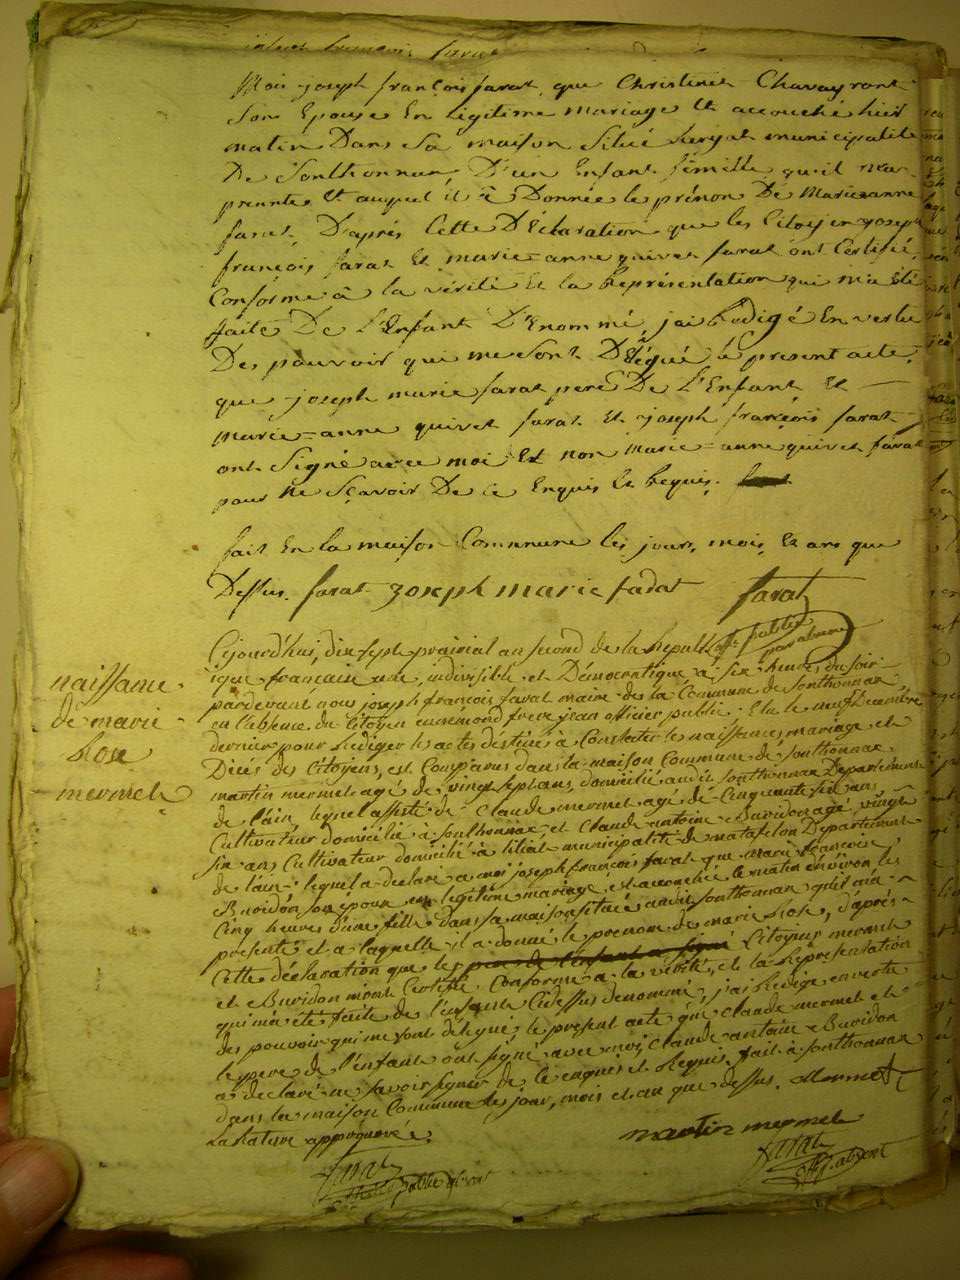 Moi joseph françois favat, que Christinée Chavayront
Son Epouse En legitime mariage Et accouché hier
matin Dans Sa maison Située municipalité
De Sonthonnax, D'un Enfant fémille qu'il ma
presente Et auquel il à Donnée le prénon De Marie anne
favat, D'après Cette Déclaration que les Citoyen joseph
françois favat Et marie-anne quivet favat ont Certifié,
Conforme à la vérité Et la Représentation qui ma été
faite De L'Enfant D'Enommé, j'ai Redigé En vertu
Des pouvoir qui me Sont Délégué le present acte,
que joseph marie favat pere De L'Enfant Et
marie=anne quivet favat Et joseph françois favat
ont Signé avec moi Et non Marie=anne quivet favat
pour ne Sçavoir De ce Enquis Et Requis.
fait En la maison Commune les jours, mois, Et ans que
Dessus. favat joseph marie favat favat
off. public
par absence
naissance
de marie
Rose
mermet
Cejourd'hui, dix sept prairial an second de la Républ
ique française une, indivisible et Démocratique à six heures du soir
pardevant nous joseph françois favat maire de la Commune de Sonthonnax
en l'absence du Citoyen frere jean officier public. Elu le neuf Decembre
dernier pour Rédiger les actes déstiné à Constater les naissances, mariage et
Décés des Citoyens, est Comparus dans la maison Commune de Sonthonnax
martin mermet agé de vingt sept ans, domicilié audit Sonthonnax Departement
de l'ain, lequel assisté de Claude mermet agé de Cinquante six ans,
Cultivateur domicilié à Sonthonnax, et Claude antoine Buvidon agé, vingt
six ans Cultivateur domicilié à municipalité de matafelon Departement
de l'ain; lequel a declaré a moi joseph françois favat que marie françoise
Buvidon son epouse en legitime mariage, est accouchée le matin environ les
Cinq heures d'une fille dans sa maison située audit Sonthonnax qu'il m'a
présenté et a laquelle il a donné le prenom de marie Rose, d'après
Cette déclaration que les Citoyens mermet
et Buvidon m'ont Certifié Conforme a la vérité, et la Représentation
qui m'a été faite de l'enfant Cidessus denommé, j'ai Rédigé en vertu
des pouvoir qui me sont délégué le présent acte que Claude mermet et
le pere de l'enfant ont signé avec moi, Claude antoine Buvidon
a déclaré ne savoir signer de ce enquis et Requis. fait à Sonthonnax
dans la maison Commune les jour, mois et an que dessus. Mermet
La Rature approuvée.
martin mermet
favat
favat